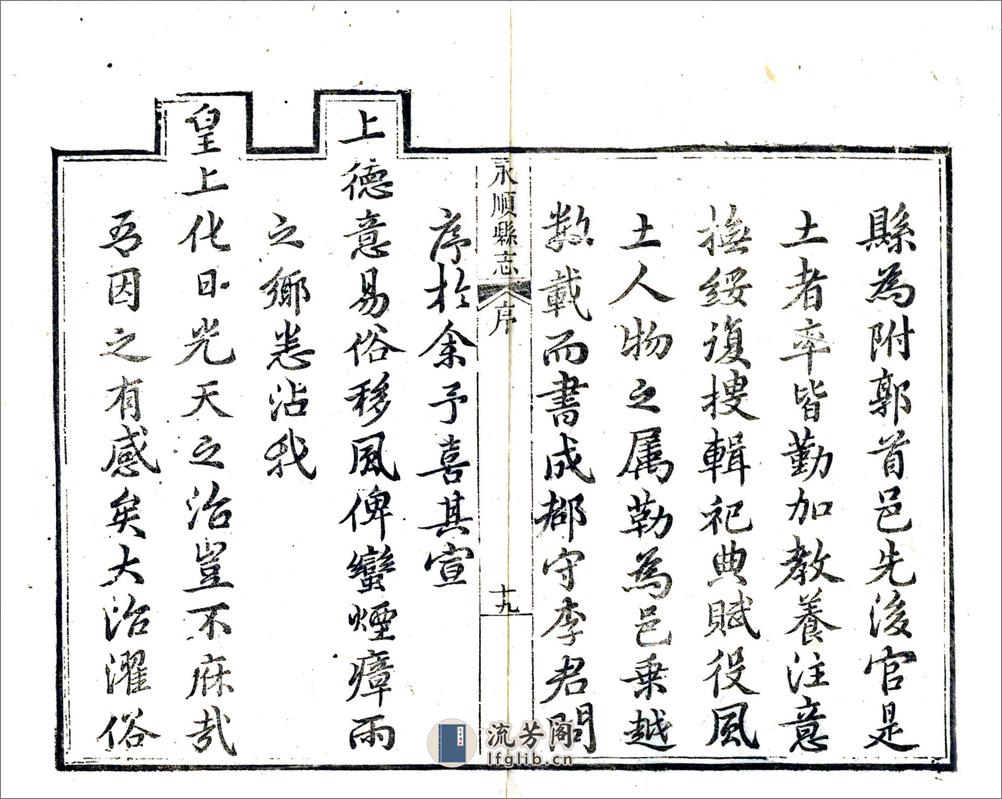 縣為附郭首邑先後官是
土者率皆勤加教養注意
撫綏復搜輯祀典賦役風
土人物之属勒為邑乗越
数載而書成郡守李君問
永順縣志
序
十九
序於余予喜其宣
上德意易俗移風俾蠻煙瘴雨
之鄉恙沾我
皇上化日光天之治豈不庥哉
吾因之有感矣大治濯俗
流芳阁
lfglib.cn